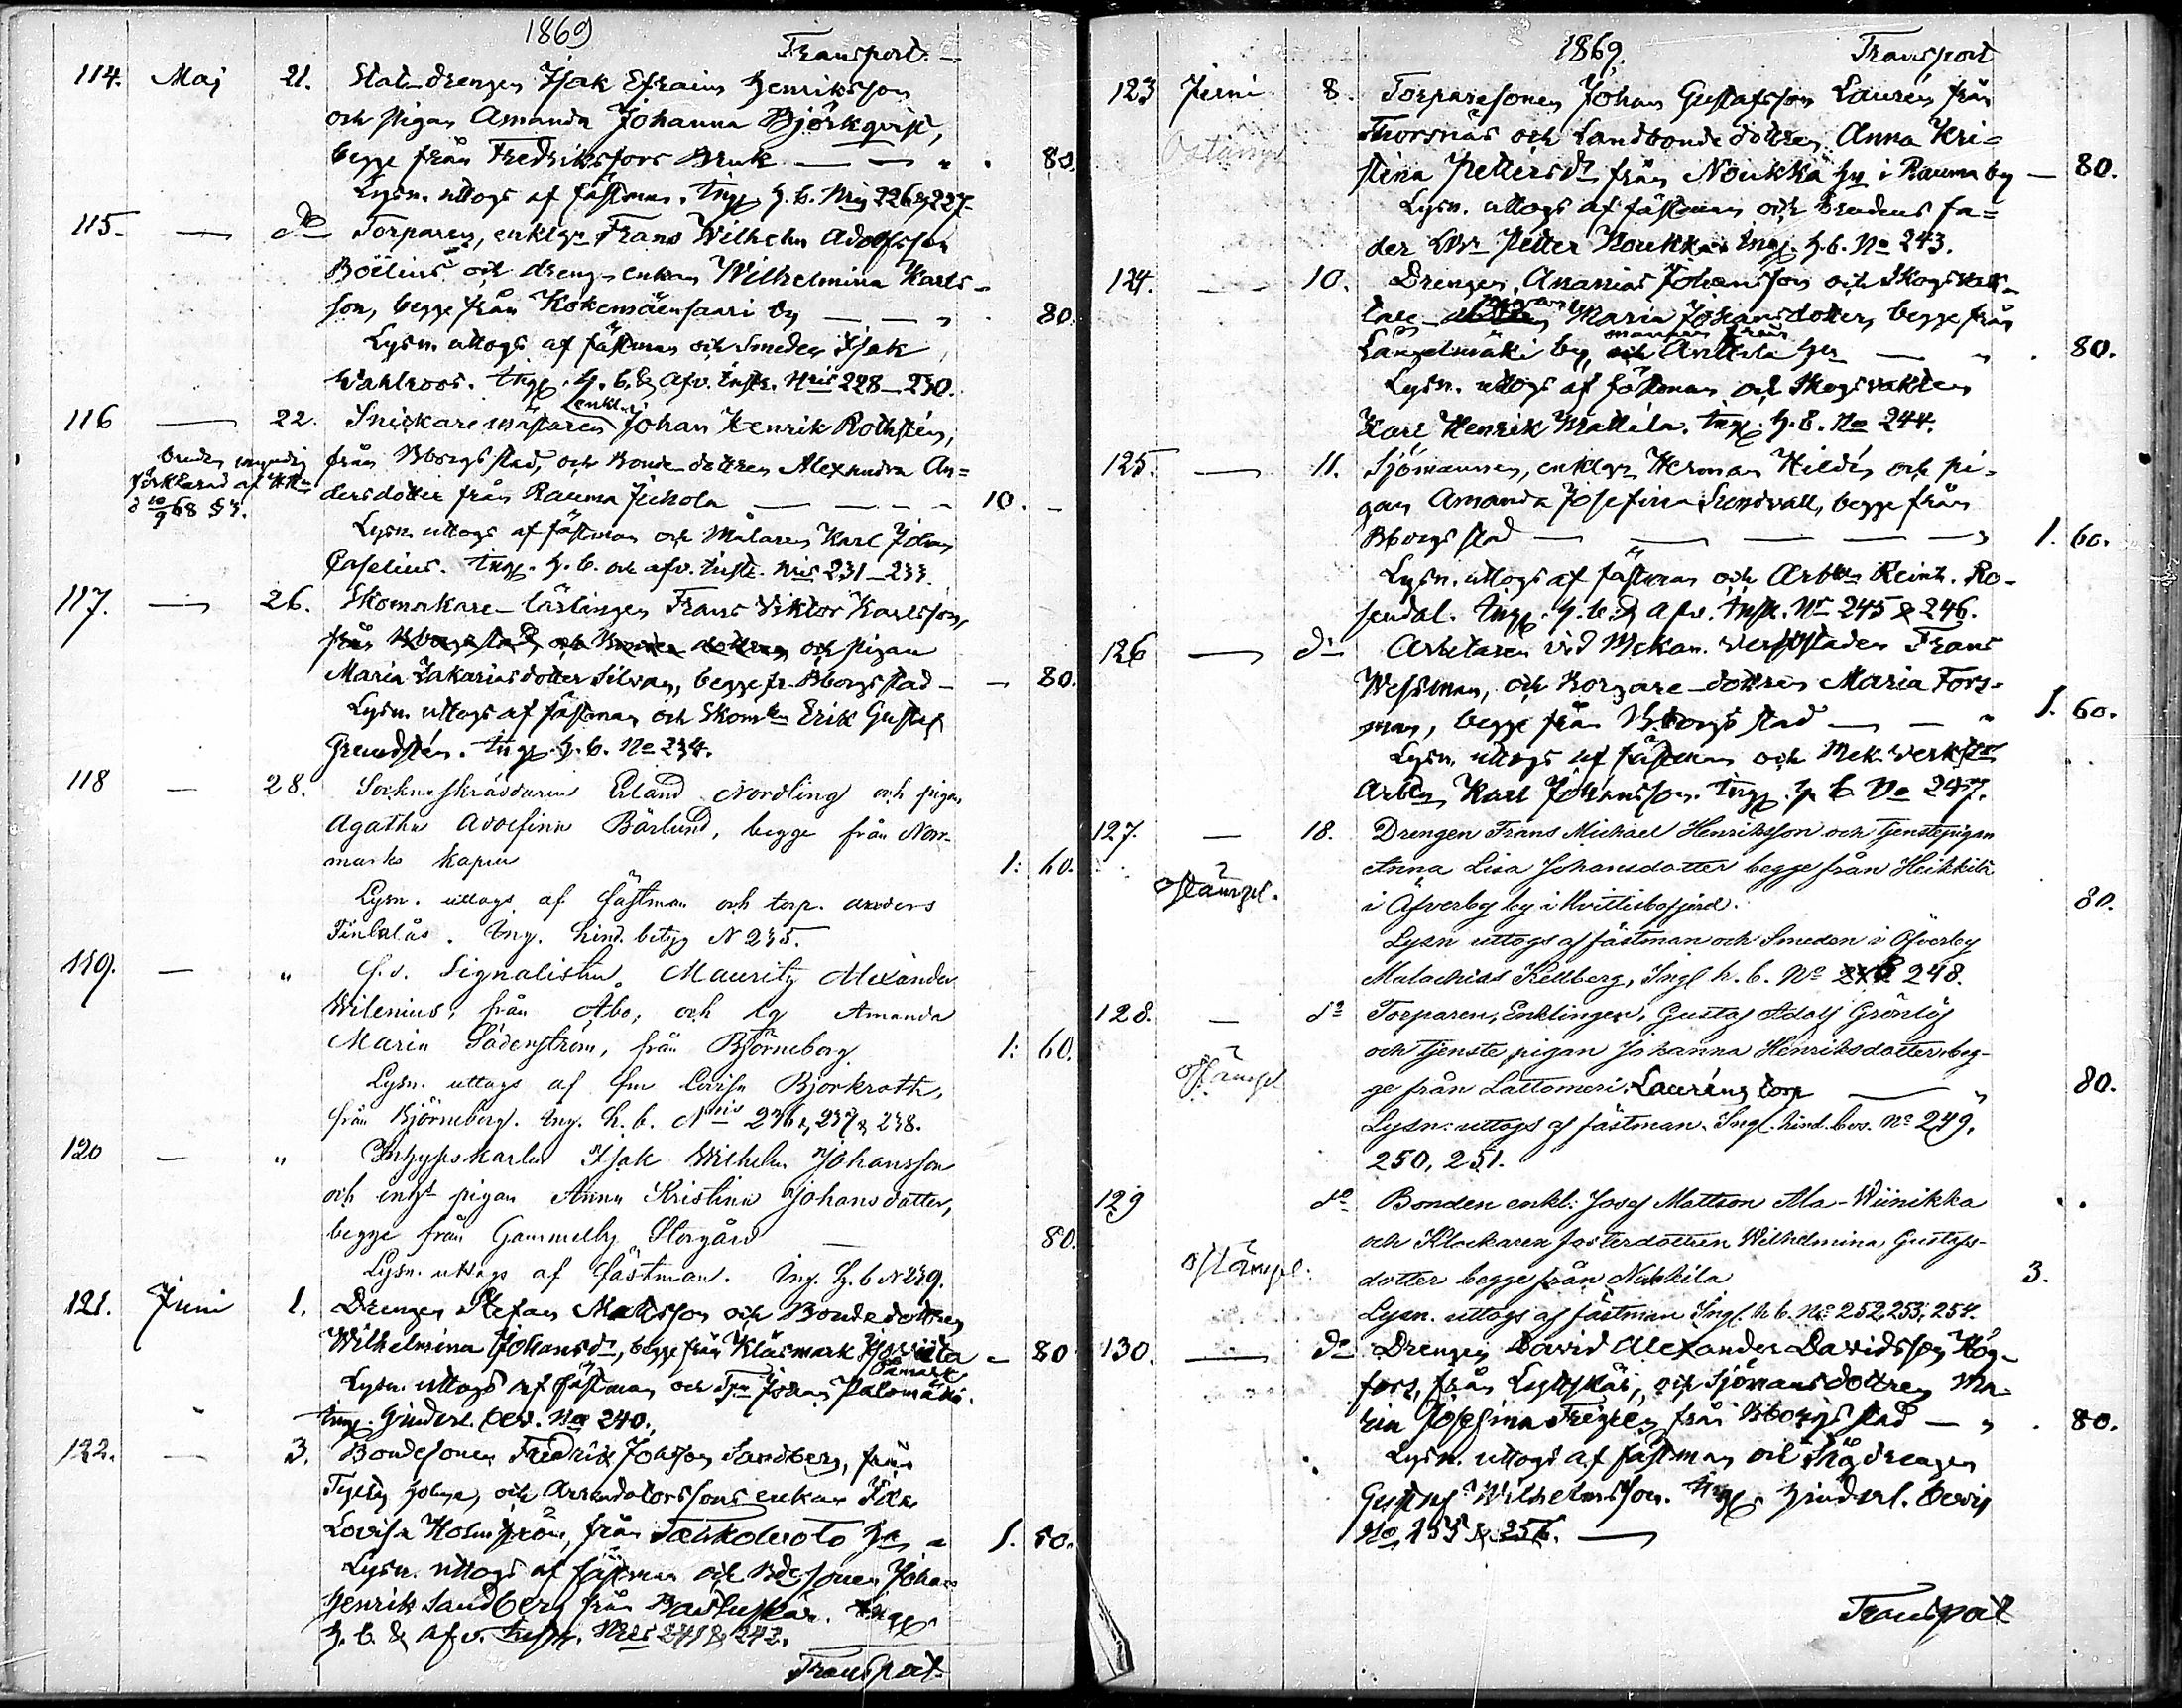 1869
Transport.
114. Maj 21. Stat-drengen Isak Efraim Henriksson
och pigan Amanda Johanna Björkqvist,
begge från Fredriksfors Bruk — — " . 80.
Lysn. uttogs af fästman. Ingg. h. b. Nris 226 & 227.
115. — do Torparen, enklgn Frans Wilhelm Adolfsson
Boëlius och dreng-enkan Wilhelmina Karls-
son, begge från Kokemäensaari by — — " 80.
Lysn. uttogs af fästman och Smeden Isak
Wahlroos. Ingg. h. b. & afv. Instr. Nris 228–230.
116 — 22. Snickaremästaren enkl. Johan Henrik Rothstén,
Bruden myndig från Bborgs stad, och Bonde dottren Alexandra An=
förklarad af HRn dersdotter från Rauma Juhola — — — 10. –
d 10/9 68 § 3.
Lysn. uttogs af fästman och Målaren Karl Johan
Caselius. Ingg. h. b. och afv. Instr. Nris 231–233.
117. — 26. Skomakare-lärlingen Frans Viktor Karlsson,
från Bborgs stad, och Bonde dottren och pigan
Maria Zakariasdotter Silvan, begge fr. Bborgs stad — — 80.
Lysn. uttogs af fästman och Skomkn Erik Gustaf
Grundstén. Ingg. h. b. No 234.
118 — 28. Sockneskräddaren Erland Nordling och pigan
Agatha Adolfina Bärlund, begge från Norr-
marks kapell 1: 60.
Lysn. uttogs af fästman och torp. Anders
Finlalås. Ing. hind. betyg N 235.
119. — " f.d. Signalisten Mauritz Alexander
Wilenius, från Åbo, och Amanda
Maria Söderström, från Björneborg 1: 60.
Lysn. uttogs af Lovisa Björkroth,
från Björneborg. Ing. h. b. Nris 236, 237 & 238.
120 — " Inhyseskarlen Isak Wilhelm Johansson
och pigan Anna Kristina Johansdotter,
begge från Gammelby Storgård — 80.
Lysn. uttogs af fästman. Ing. h. b N 239.
121. Juni 1. Drengen Stefan Mattsson och Bondedottren
Wilhelmina Johansdr, begge från Klåsmark — 80
Påmark
Lysn. uttogs af fästman och Johan Palomäki.
Ingg. hinderl. bev. No 240.
122. — 3. Bondesonen Fredrik Johnson Sandberg, från
och Arrendatorssons enkan Ida
Lovisa Holmström, från Tahkoluoto hn " 1. 60.
Lysn. uttogs af fästman och Bdesonen Johan
Henrik Sandberg från Bastuskär. Ingg.
h. b. & afv. Instr. Nris 241 & 242.
Transport.
1869.
Transport
123 Juni 8. Torparesonen Johan Gustafsson Laurén från
Ostämpl Thorsnäs och Landbonde dottren Anna Kri=
stina Pettersdr från Noukka hn i Rauma by — 80.
Lysn. uttogs af fästman och brudens fa=
der LBn Petter Noukka. Ingg. h. b. No 243.
124. — 10. Drengen Ananias Johansson och Skogsvak-
tare pigan Maria Johansdotter, begge från
Längelmäki by, och Anttila hn — " . 80.
Lysn. uttogs af fästman och Skogsvakten
Karl Henrik Mattila. Ingg. h. b. No 244.
125. — 11. Sjömannen, enklgn Herman Hildén och pi-
gan Amanda Josefina Sundvall, begge från
Bborgs stad — — — — " 1. 60.
Lysn. uttogs af fästman och Arbkn Reinh. Ro-
sendal. Ingg. h. b. & afv. Instr. Nr 245 & 246.
126 — do Arbetaren vid Mekan. verkstaden Frans
Wessman, och Borgare-dottren Maria Fors-
man, begge från Bborgs stad — — " 1. 60.
Lysn. uttogs af fästman och Mek. verkstds
Arbtn Karl Johansson. Ingg. h. b. No 247.
127. — 18. Drengen Frans Michael Henriksson och tjenstepigan
Anna Lisa Johansdotter begge från Heikkilä
ostämpl. i Äfverby by i Hvittisbofjerd. 80.
Lysn uttogs af fästman och Smeden i Öfverby
Malachias Kellberg, Ingl h. b. No 248.
128. — do Torparen, Enklingen, Gustaf Adolf Grönlöf
och tjenste pigan Johanna Henriksdotter, beg-
ostämpl ge från Lattomeri. Lauréns torp — " 80.
Lysn: uttogs af fästman. Ingl. hind. bev. No 249,
250, 251.
129 do Bonden enkl: Josef Mattson Ala-Wiinikka
och Klockaren fosterdottren Wilhelmina Gustafs-
ostämpl. dotter begge från Nakkila 3.
Lysn. uttogs af fästman Ingl. h b. No 252, 253, 254.
130. — do Drengen David Alexander Davidsson Hög-
fors, från Lyttskär, och Sjömansdottren Ma-
ria Josefina från Bborgs stad — " . 80.
Lysn. uttogs af fästman och drengen
Gustaf Wilhelmsson. Ingg. hinderl. bevis
No 255 & 256. —
Transport